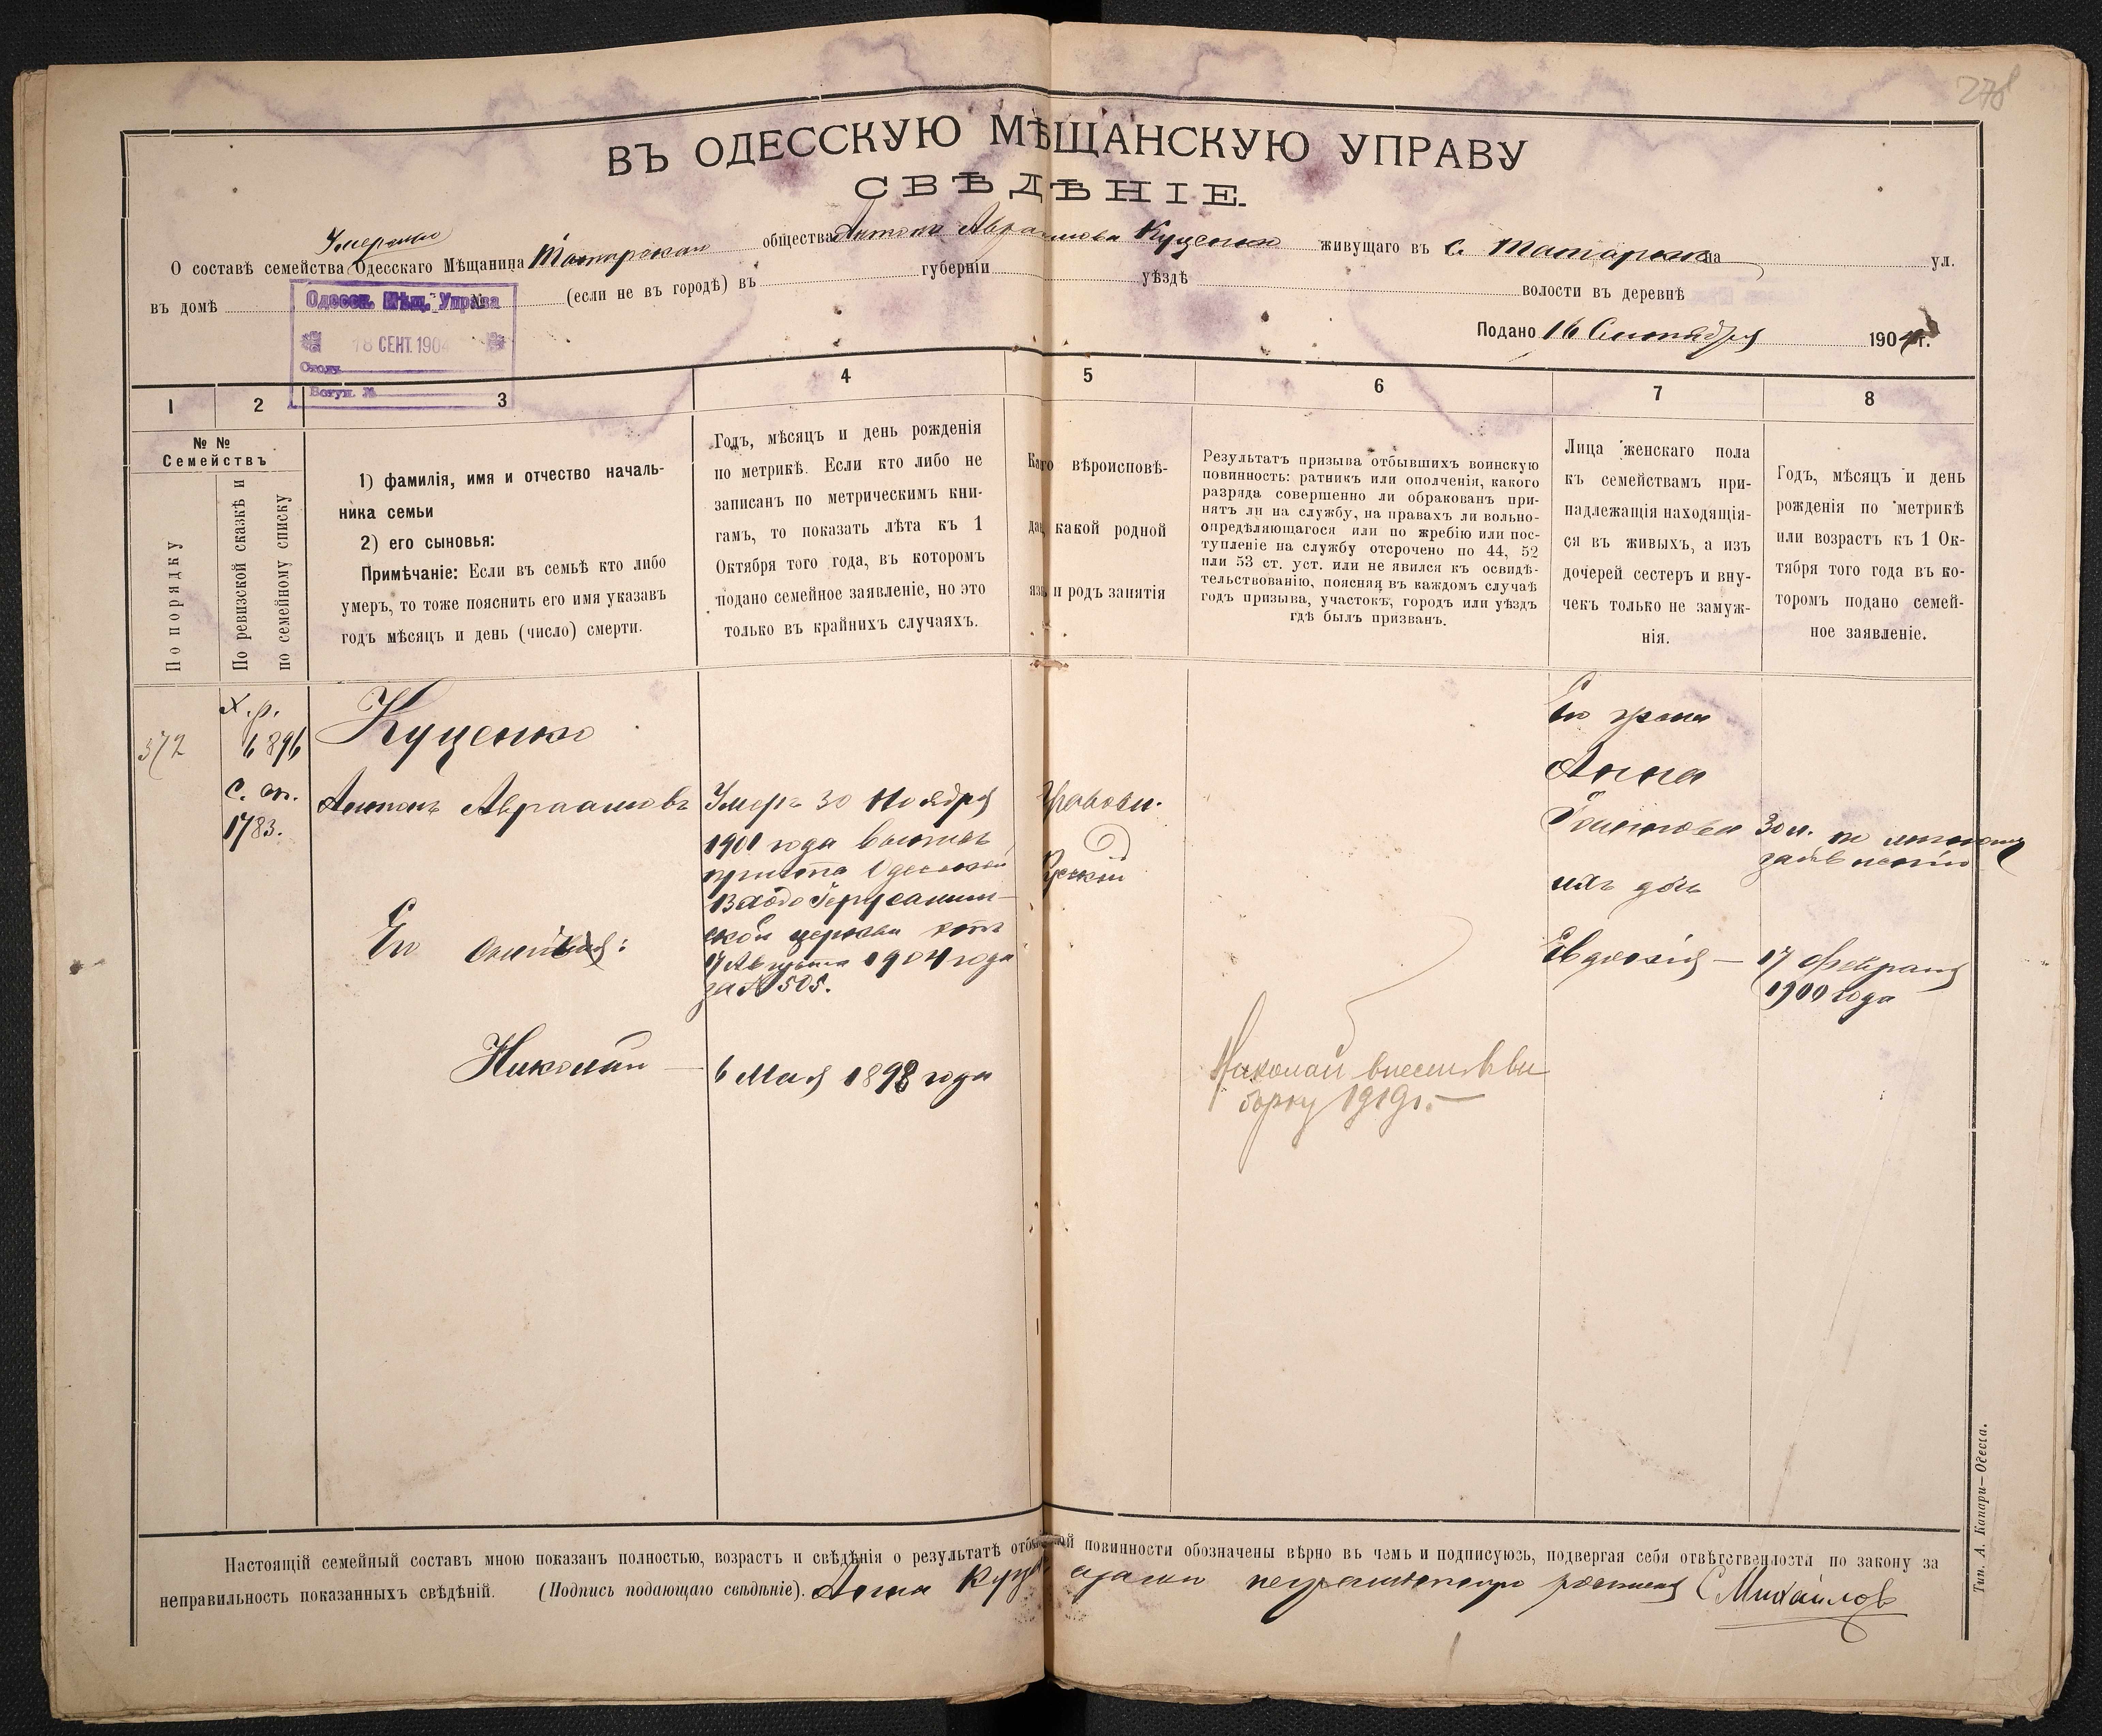 278
ВЪ ОДЕССКУЮ МѢЩАНСКУЮ УПРАВУ
СВѢДѢНІЕ.
Умершаго
О составѣ семейства Одесскаго Мѣщанина Татарскаго общества Антона Авраамова Куценко живущаго въ с. Татаркѣ на ул.
въ домѣ № (если не въ городѣ) въ губерніи уѣздѣ волости въ деревнѣ
Одесск. Мѣщ. Управа
18 СЕНТ. 1904
Входящ.
Подано 16 Сентября 1904 г.
1 2 3 4 5 6 7 8
№ №
Семействъ
По порядку
По ревизской сказкѣ и
по семейному списку
1) фамилія, имя и отчество началь-
ника семьи
2) его сыновья:
Примѣчаніе: Если въ семьѣ кто либо
умеръ, то тоже пояснить его имя указавъ
годъ мѣсяцъ и день (число) смерти.
Годъ, мѣсяцъ и день рожденія
по метрикѣ. Если кто либо не
записанъ по метрическимъ кни-
гамъ, то показать лѣта къ 1
Октября того года, въ которомъ
подано семейное заявленіе, но это
только въ крайнихъ случаяхъ.
Какого вѣроисповѣ-
данія, какой родной
языкъ и родъ занятія
Результатъ призыва отбывшихъ воинскую
повинность: ратникъ или ополченія, какого
разряда совершенно ли обракованъ при-
нятъ ли на службу, на правахъ ли вольно-
опредѣляющагося или по жребію или пос-
тупленіе на службу отсрочено по 44, 52
или 53 ст. уст. или не явился къ освидѣ-
тельствованію, поясняя въ каждомъ случаѣ
годъ призыва, участокъ, городъ или уѣздъ
гдѣ былъ призванъ.
Лица женскаго пола
къ семействамъ при-
надлежащія находящія-
ся въ живыхъ, а изъ
дочерей сестеръ и вну-
чекъ только не замуж-
нія.
Годъ, мѣсяцъ и день
рожденія по метрикѣ
или возрастъ къ 1 Ок-
тября того года въ ко-
торомъ подано семей-
ное заявленіе.
372
X. р.
6896
с. сп.
1783.
Куценко
Антонъ Авраамовъ
Умеръ 30 Ноября
1901 года выпись
причта Одесской
Входо Іерусалим-
ской церкви отъ
17 Августа 1904 года
за № 505.
Православн.
Русскій
Его сыновья:
Николай — 6 Мая 1898 года
Николай внесенъ въ вы
борку 1919 г. —
Его жена
Анна
30 л. по личному
заявленію
ихъ дочь
Евдокія — 17 Февраля
1900 года
Настоящій семейный составъ мною показанъ полностью, возрастъ и свѣдѣнія о результатѣ отбы повинности обозначены вѣрно въ чемъ и подписуюсь, подвергая себя отвѣтственности по закону за
неправильность показанныхъ свѣдѣній. (Подпись подающаго свѣдѣніе). Анна Куценко а за нее неграмотную росписался С Михайлов
Тип. А. Капари—Одесса.